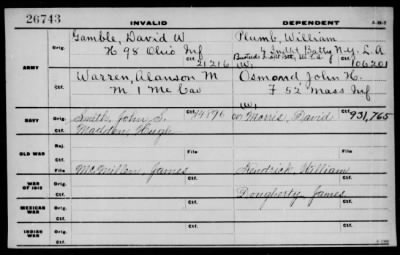 26743 INVALID DEPENDENT 3-18-2
ARMY
Orig. Gamble, David W Plumb, William
H 98 Ohio Inf 9 Indpt Batty N.Y. L A
Ctf. 21216 Wi. 106201
Orig. Warren, Alanson M Osmond John H.
M 1 Me Cav F 52 Mass Inf
Ctf. Wi
NAVY Orig. Smith, John S. 14896 Morris, David Ctf. 931,765
Ctf. Madden, Hugh
OLD WAR Rej.
Ctf. File File
WAR OF 1812 Orig. McMillen, James Kendrick, William
Ctf. Dougherty, James
MEXICAN WAR Orig.
Ctf.
INDIAN WAR Orig.
Ctf.